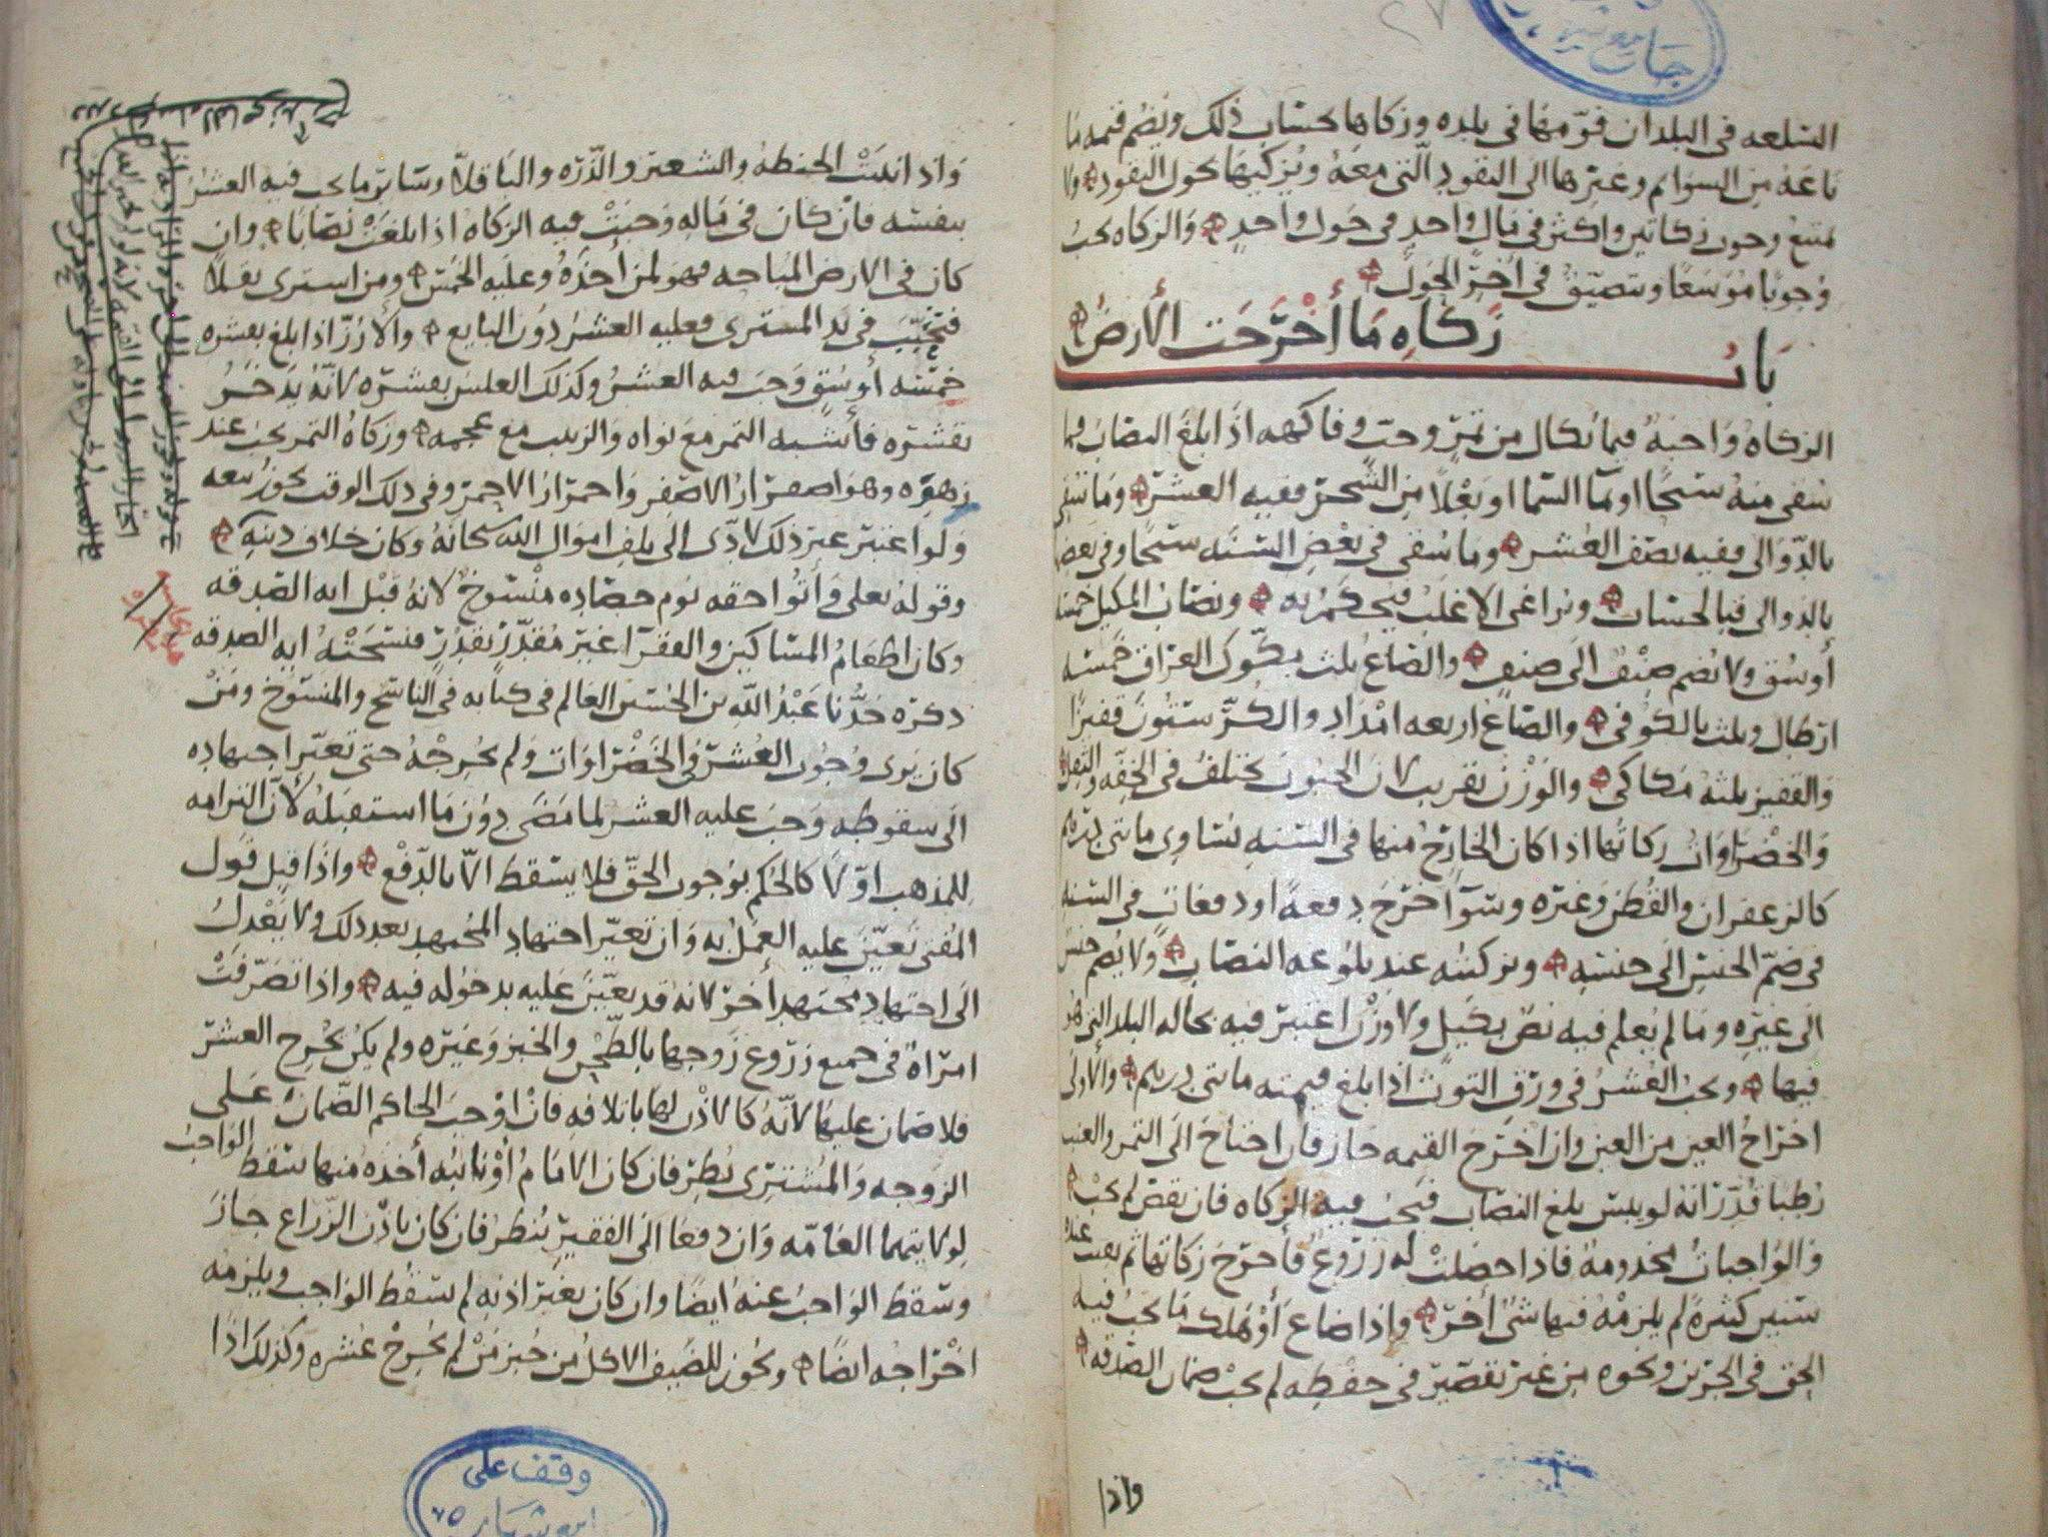 السلعه في البلدان قومها في بلده وزكاها بحساب ذلك ويضم قيمه ما
باعه من السوائم وغيرها الى النقود التي معه ويزكيها بحول النقود ولا
يمتنع وجوب زكاتين واكثر في مال واحد في حول واحد والزكاه تجب
وجوبا موسعا ويتضيق في اخر الحول
باب زكاه ما أخرجت الأرض
الزكاه واجبه فيما يكال من تمر وحب وفاكهه اذا بلغ النصاب فما
سقي منه سيحا او بماء السما او بعلا من الشجر ففيه العشر وما سقي
بالدوالى ففيه نصف العشر وما سقي في بعض السنه سيحا وفي بعضها
بالدوالى فبالحساب ويراعى الاغلب فيحكم به ونصاب المكيل خمسه
أوسق ولا يضم صنف الى صنف والصاع ثلث مكوك العراق خمسه
ارطال وثلث بالكوفي والصاع اربعه امداد والكر ستون قفيزا
والقفيز ثلثه مكاكي والوزن تقريب لان الحبوب تختلف في الخفه والثقل
والخضراوات زكاتها اذا كان الخارج منها في السنه يساوى مائتي درهم
كالزعفران والقطن وغيره وسوآ خرج دفعه او دفعات في السنه
في ضم الجنس الى جنسه ويزكيه عند بلوغه النصاب ولا يضم جنس
الى غيره وما لم يعلم فيه نص بكيل ولا وزن اعتبر فيه بحاله البلد التي هو
فيها ويجب العشر في ورق التوث اذا بلغ قيمته مائتي درهم والأولى
اخراج العين من العين وان اخرج القيمه جاز فان احتاج الى التمر والعنب
رطبا قدر انه لو يبس بلغ النصاب فتجب فيه الزكاه فان نقص لم يجب
والواجبات مخدومه فاذا حصلت له زروع فأخرج زكاتها ثم بقيت عنده
سنين كثيره لم يلزمه فيها شئ أخر واذا ضاع أو هلك ما يجب فيه
الحق في الجرين ونحوه من غير تقصير في حفظه لم يجب ضمان الصدقه
واذا
واذا انبتت الحنطه والشعير والذره والباقلا وسائر ما يجب فيه العشر
بنفسه فان كان في ماله وجبت فيه الزكاه اذا بلغت نصابا وان
كان في الارض المباحه فهو لمن أخذه وعليه الخمس ومن اشترى بقلا
فتحبب في يد المشترى فعليه العشر دون البايع والأرز اذا بلغ بقشره
خمسه أوسق وجب فيه العشر وكذلك العلس بقشره لانه يدخر
بقشره فأشبه التمر مع نواه والزبيب مع عجمه وزكاه التمر تجب عند
زهوه وهو اصفرار الاصفر واحمرار الاحمر وفي ذلك الوقت يجوز بيعه
ولو اعتبر غير ذلك لأدى الى تلف اموال الله سبحانه وكان خلاف دينه
وقوله تعلى وأتوا حقه يوم حصاده منسوخ لانه قبل ايه الصدقه
وكان اطعام المساكين والفقرا غير مقدر بقدر فنسخته ايه الصدقه
ذكره جدنا عبد الله بن الحسين العالم في كتابه في الناسخ والمنسوخ ومن
كان يرى وجوب العشر في الخضراوات ولم يخرجه حتى تغير اجتهاده
الى سقوطه وجب عليه العشر لما مضى دون ما استقبله لأن التزامه
للمذهب اولا كالحكم بوجوب الحق فلا يسقط الا بالدفع واذا قبل قول
المفتى تعين عليه العمل به وان تغير اجتهاد المجتهد بعد ذلك ولا يعدل
الى اجتهاد مجتهد أخر لانه قد تعين عليه بدخوله فيه واذا تصرفت
امرأه في جميع زروع زوجها بالطحن والخبز وغيره ولم يكن يخرج العشر
فلا ضمان عليها لانه كالاذن لها باتلافه فان اوجب الحاكم الضمان على
الزوجه والمشترى نظر فان كان الامام أو نائبه أخذه منها سقط الواجب
لولايتهما العامه وان دفعا الى الفقير ينظر فان كان باذن الزراع جاز
وسقط الواجب عنه ايضا وان كان بغير اذنه لم يسقط الواجب ويلزمه
اخراجه ايضا ويجوز للضيف الاكل من خبز من لم يخرج عشره وكذلك اذا
وقف على